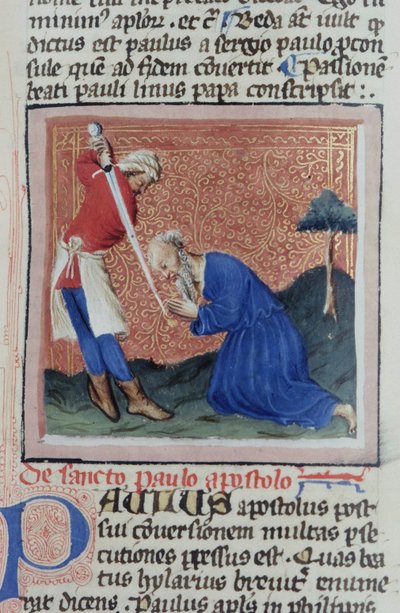 minimus aplorum. et c̄ Beda at uult qꝫ
dictus est paulus a sergio paulo pcon
sule quē ad fidem cōuertit Passionē
beati pauli linus papa conscripsit :.
de sancto paulo apostolo
PAULUS apostolus post
sui cōuersionem multas pse
cutiones ꝑpessus est. Quas bea
tus hylarius breuit̄ enume
rat dicens. Paulus apls̄ in philippis